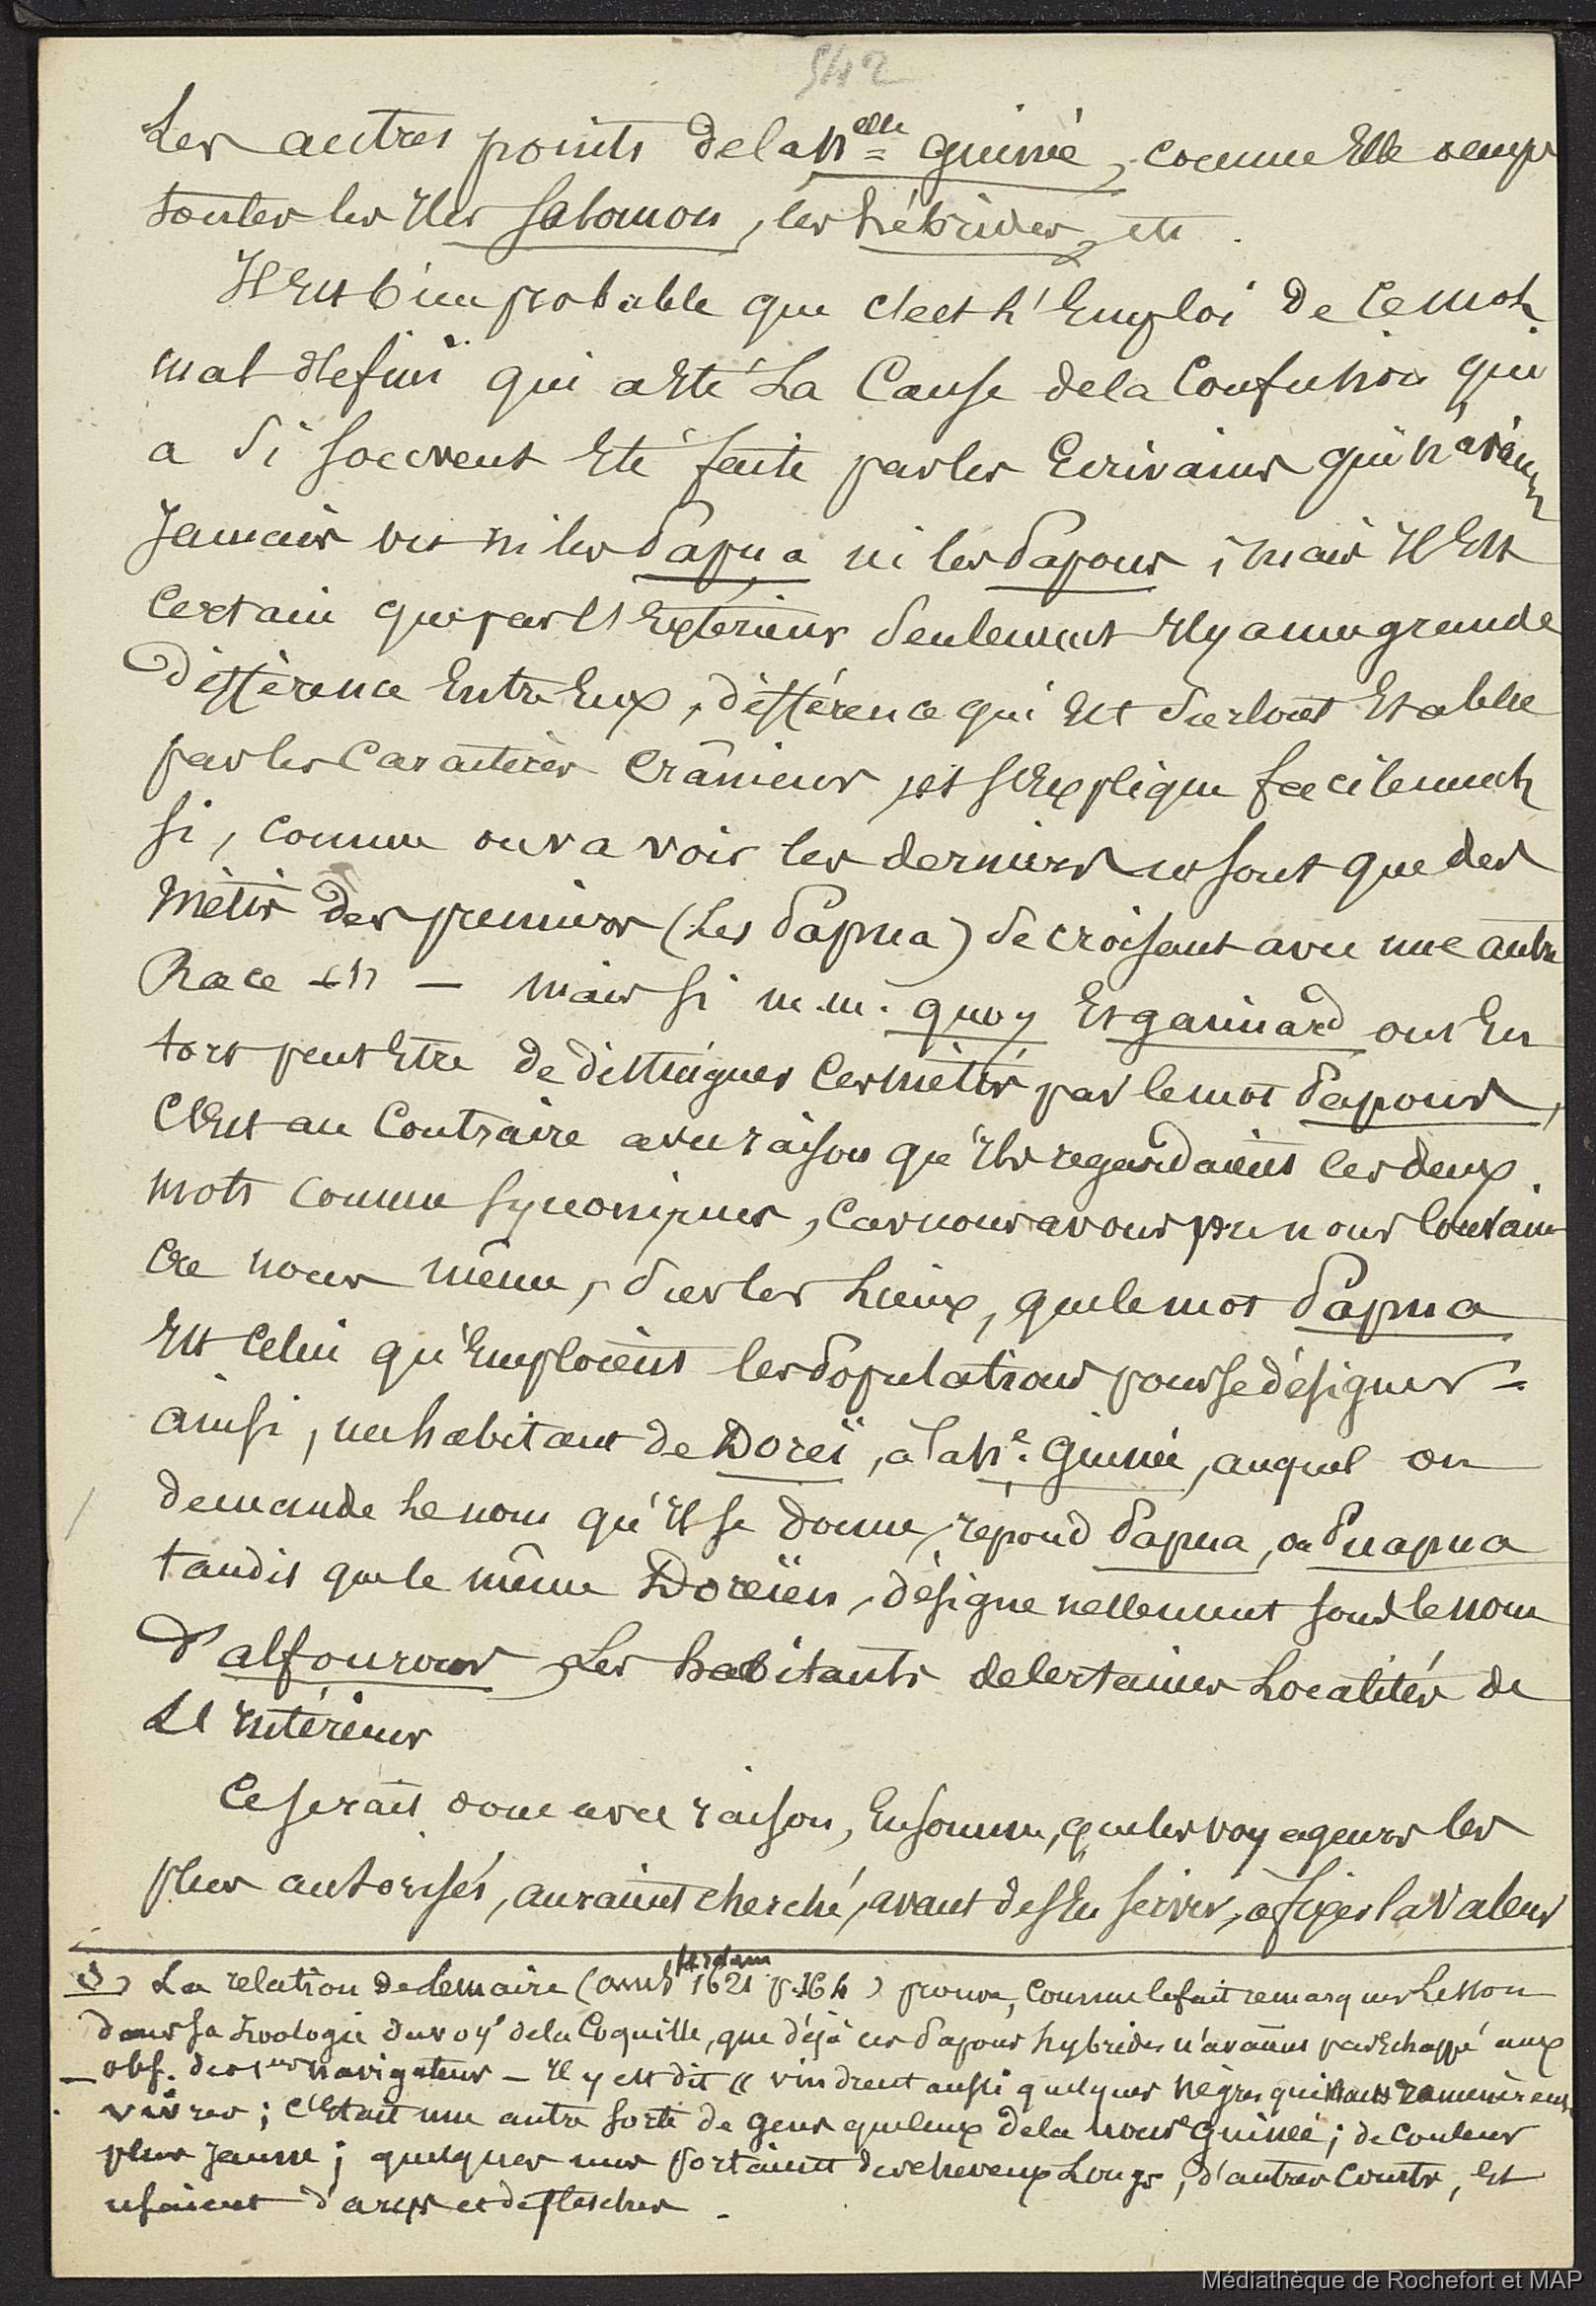 542
Les autres points de la Nelle Guinée, comme elle occupe
toutes les Iles Salomon, les hébrides, etc.
Il est bien probable que c'est l'Emploi de ce mot
mal défini qui a été La Cause de la Confusion qui
a si souvent été faite par les Ecrivains qui n'avaient
Jamais vu ni les Papua ni les Papous ; mais Il Est
Certain que par l'Extérieur seulement Il y a une grande
différence Entre Eux, différence qui Est surtout Etablie
par les Caractères Crâniens, et s'Explique facilement
si, comme on va voir les derniers ne sont que des
Métis des premiers (Les Papua) se croisant avec une autre
Race (1) — mais si m.m. quoy Et gaimard ont Eu
tort peut Etre de distinguer Ces métis par le mot Papous,
C'Est au Contraire avec raison qu'Ils regardaient les deux
mots comme synonimes, Car nous avons pu nous Convain
cre nous même, sur les Lieux, que le mot Papua
Est Celui qu'Emploient les Populations pour se désigner =
ainsi, un habitant de Doreï, à la Ne. Guinée, auquel on
demande Le nom qu'Il se donne, répond Papua, ou Puapua
tandis que le même Doreïen, désigne nettement sous le nom
d'alfourous Les habitants de Certaines Localités de
L'Intérieur
Ce serait donc avec raison, En somme, que les voyageurs les
plus autorisés, auraient cherché, avant de s'En servir, à fixer la Valeur
(1) La relation de Lemaire (amsterdam 1621 p. 164) prouve, Comme le fait remarquer Lesson
dans sa Zoologie du voy. de la Coquille, que déjà ces Papous hybrides n'avaient pas Echappé aux
— obs. des 1ers navigateurs — Il y est dit « vindrent aussi quelques Nègres qui nous
vivres ; C'Etait une autre sorte de gens que ceux de la nouv. Guinée ; de Couleur
plus Jaune ; quelques uns portaient des cheveux Longs, d'autres Courts, Et
usaient d'arcs et de flesches.
Médiathèque de Rochefort et MAP